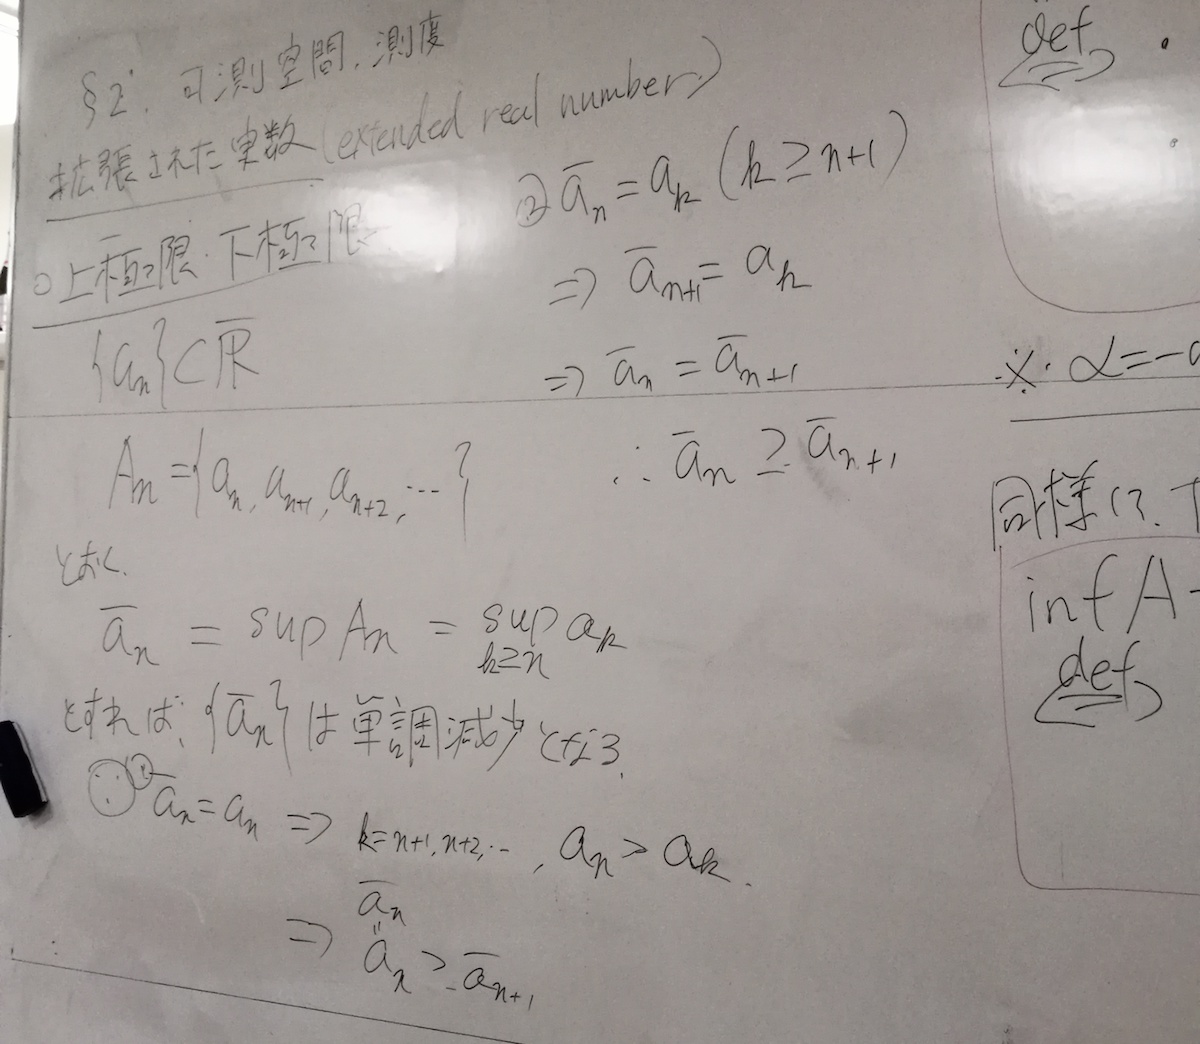 §2. 可測空間, 測度
拡張された実数 (extended real number)
○上極限・下極限
{a_n} ⊂ R̅
A_n = {a_n, a_{n+1}, a_{n+2}, … }
とおく.
a̅_n = sup A_n = sup_{k≥n} a_k
とすれば, {a̅_n} は単調減少となる.
① a̅_n = a_n ⇒ k=n+1, n+2, … , a_n > a_k.
⇒ a̅_n = a_n ≥ a̅_{n+1}
② a̅_n = a_k (k ≥ n+1)
⇒ a̅_{n+1} = a_k
⇒ a̅_n = a̅_{n+1}
∴ a̅_n ≥ a̅_{n+1}
def
※. α=-
同様に,
inf A
def